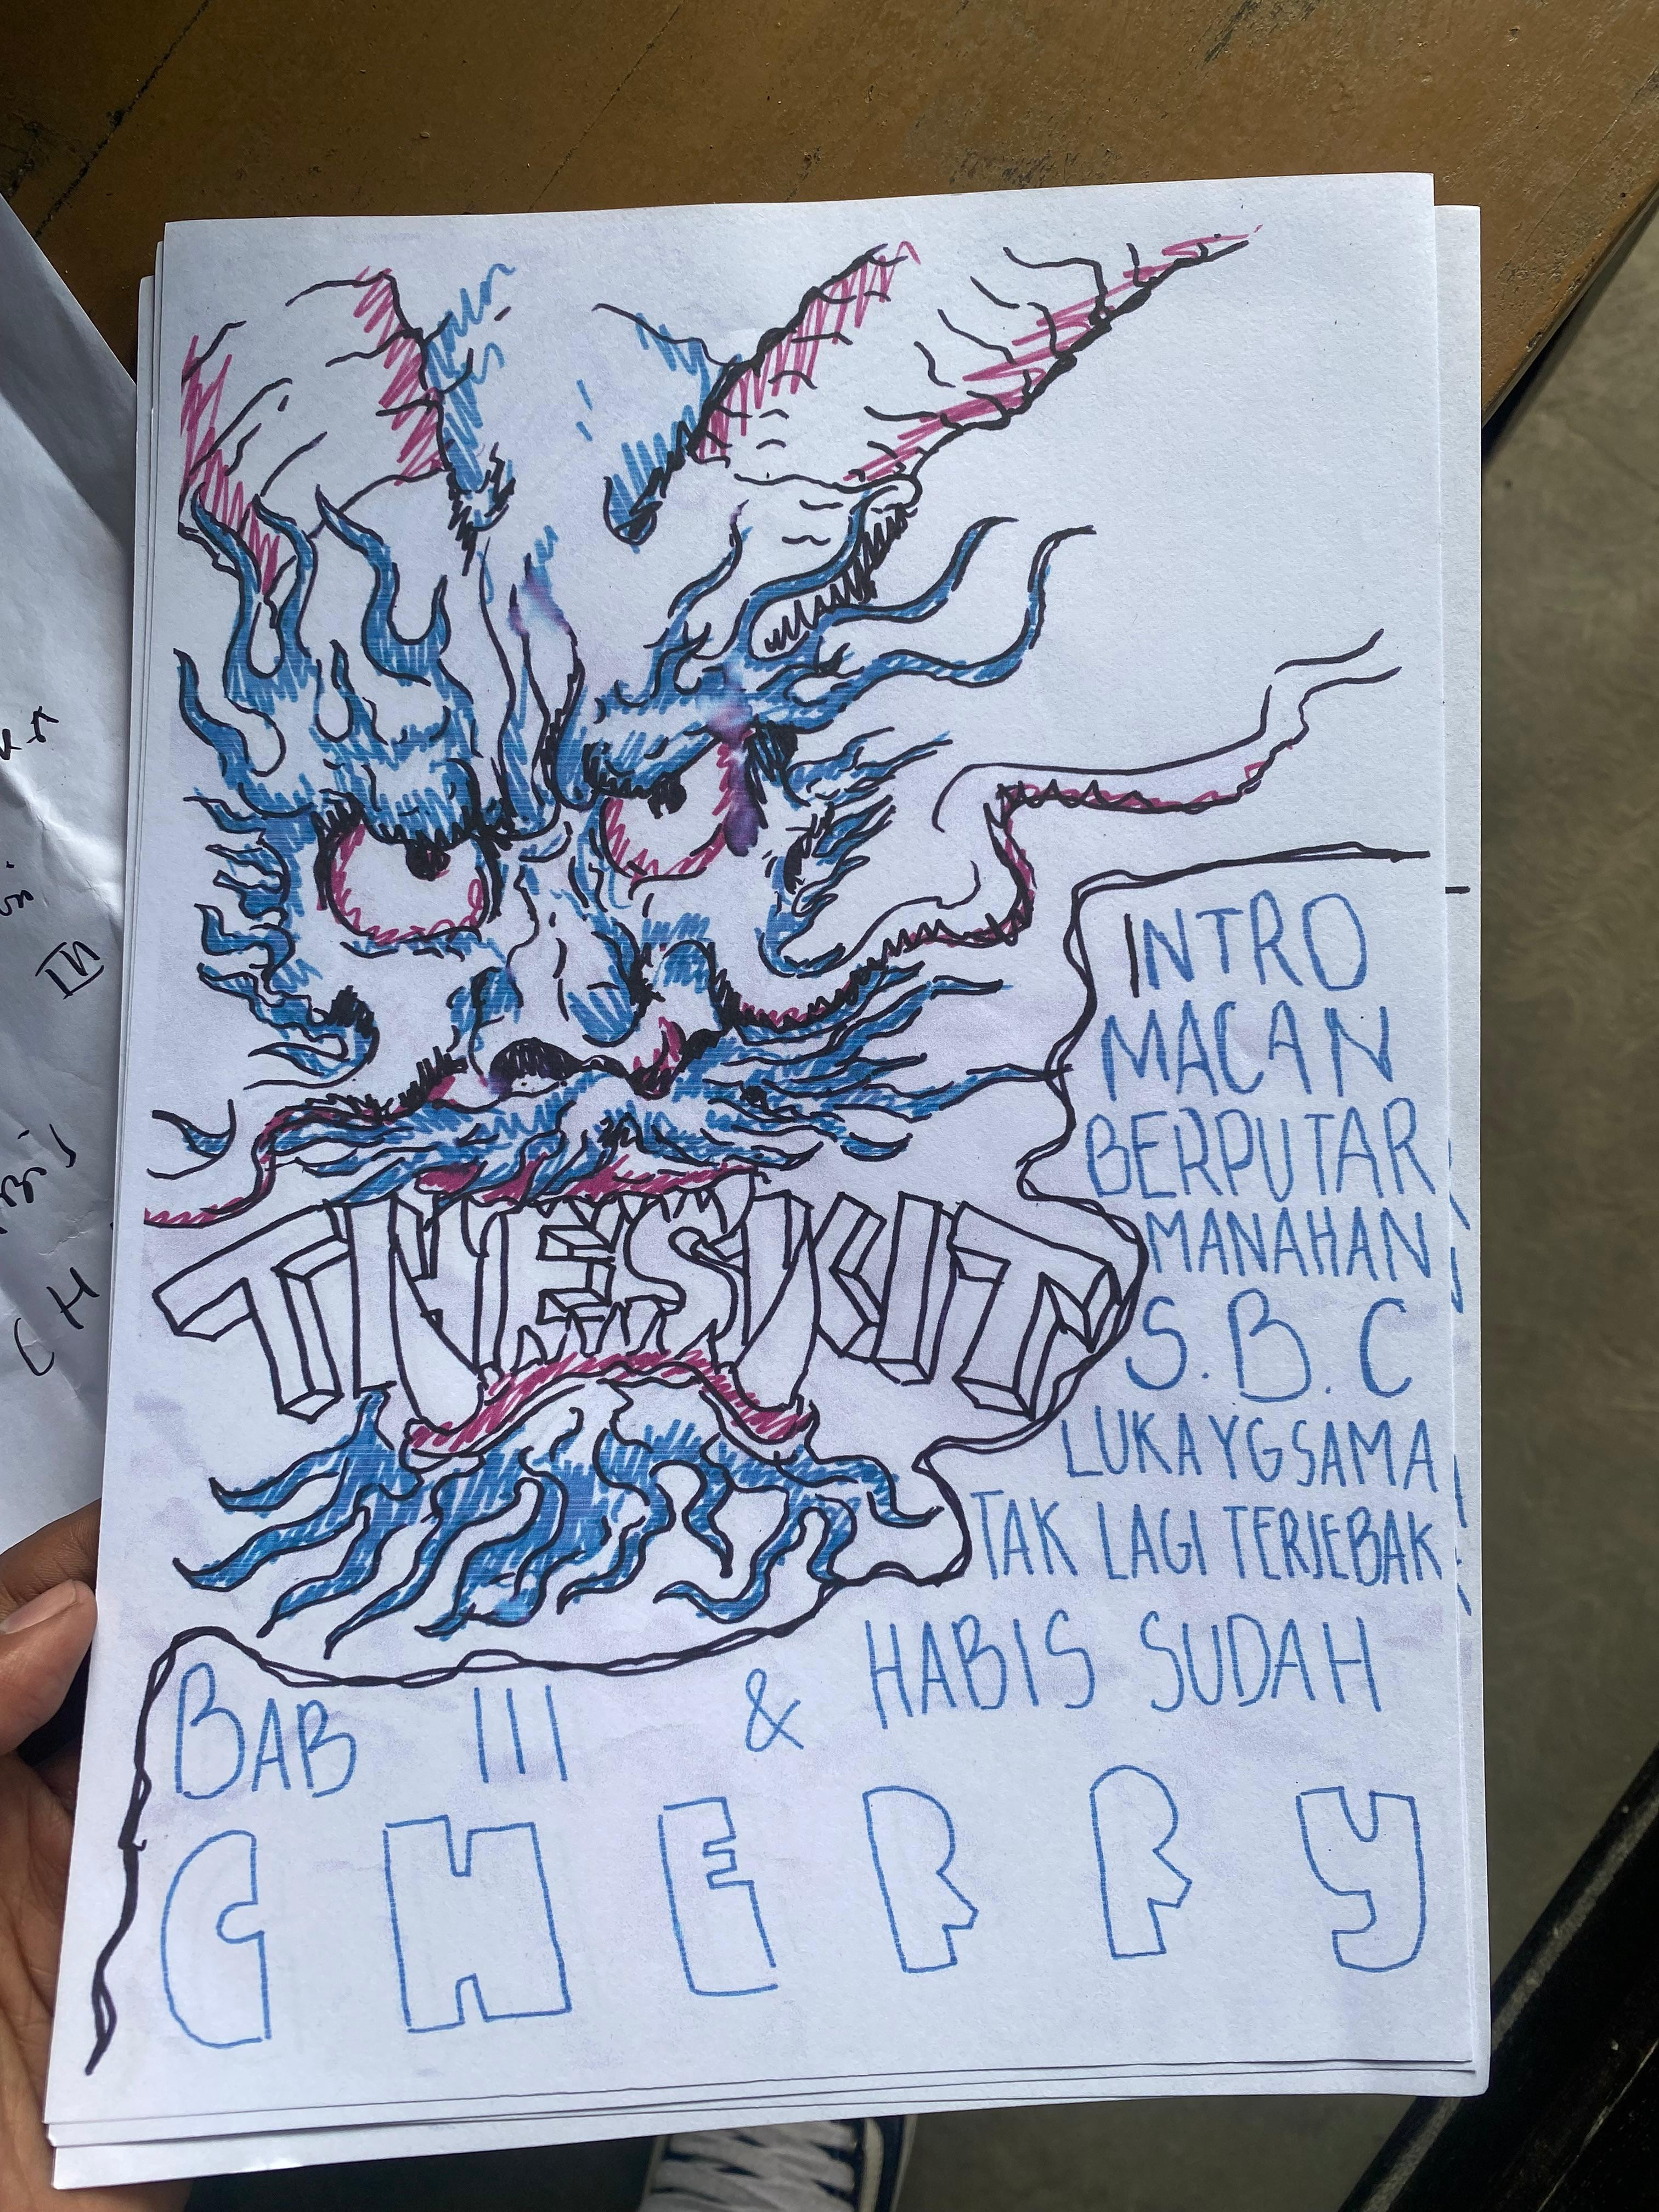 THESKIT
INTRO
MACAN
BERPUTAR
MANAHAN
S.B.C
LUKA YG SAMA
TAK LAGI TERJEBAK
BAB III & HABIS SUDAH
CHERRY